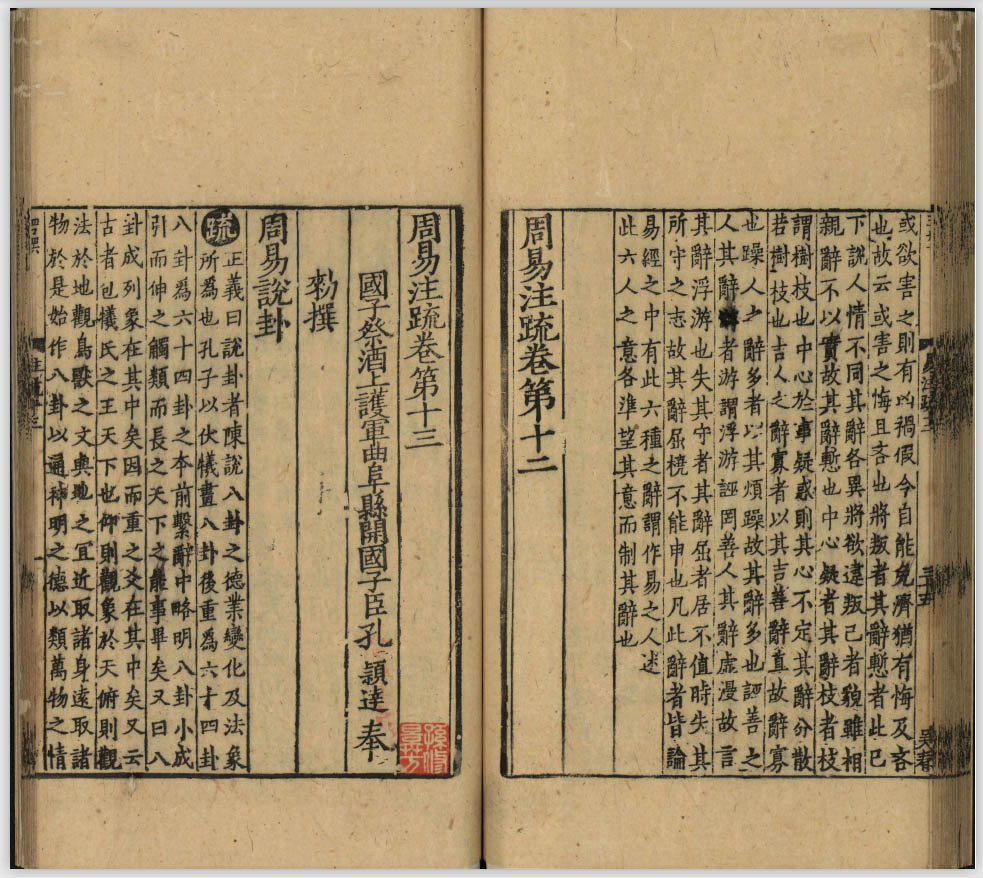 或欲害之則有凶禍假今自能免濟猶有悔及吝
也故云或害之悔且吝也將叛者其辭慙者此已
下說人情不同其辭各異將欲違叛己者貌雖相
親辭不以實故其辭慙也中心疑者其辭枝者枝
謂樹枝也中心於事疑惑則其心不定其辭分散
若樹枝也吉人之辭寡者以其吉善辭直故辭寡
也躁人之辭多者以其煩躁故其辭多也誣善之
人其辭游者游謂浮游誣罔善人其辭虛漫故言
其辭浮游也失其守者其辭屈者居不值時失其
所守之志故其辭屈橈不能申也凡此辭者皆論
易經之中有此六種之辭謂作易之人述
此六人之意各準望其意而制其辭也
周易注疏卷第十二
周易注疏卷第十三
國子祭酒上護軍曲阜縣開國子臣孔穎達奉
勑撰
周易說卦
疏正義曰說卦者陳說八卦之德業變化及法象
所爲也孔子以伏犧畫八卦後重爲六十四卦
八卦爲六十四卦之本前繫辭中略明八卦小成
引而伸之觸類而長之天下之能事畢矣又曰八
卦成列象在其中矣因而重之爻在其中矣又云
古者包犧氏之王天下也仰則觀象於天俯則觀
法於地觀鳥獸之文與地之宜近取諸身遠取諸
物於是始作八卦以通神明之德以類萬物之情